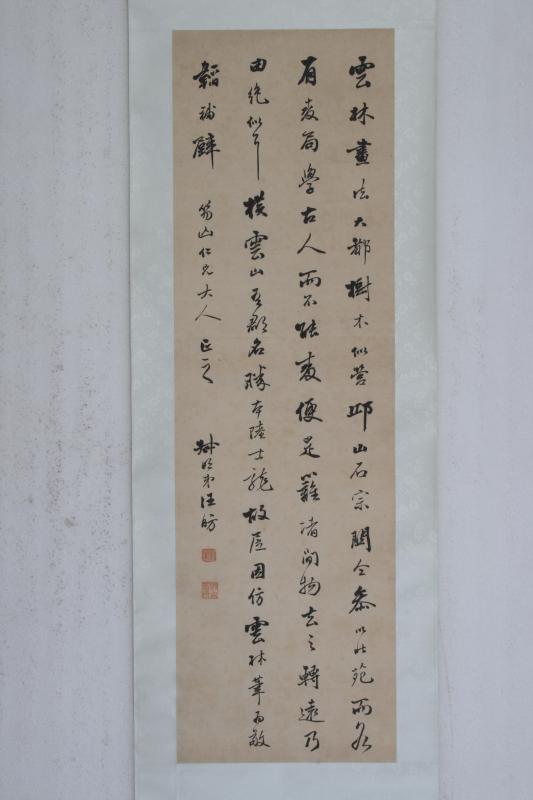 雲林畫法大都樹木似營邱山石宗關仝參以北苑而各
有變局學古人而不能變便是籬堵間物去之轉遠乃
由絶似耳 橫雲山吾郡名勝本陸士龍故居因仿雲林筆而敢
韜補 仁兄大人正之 弟汪昉